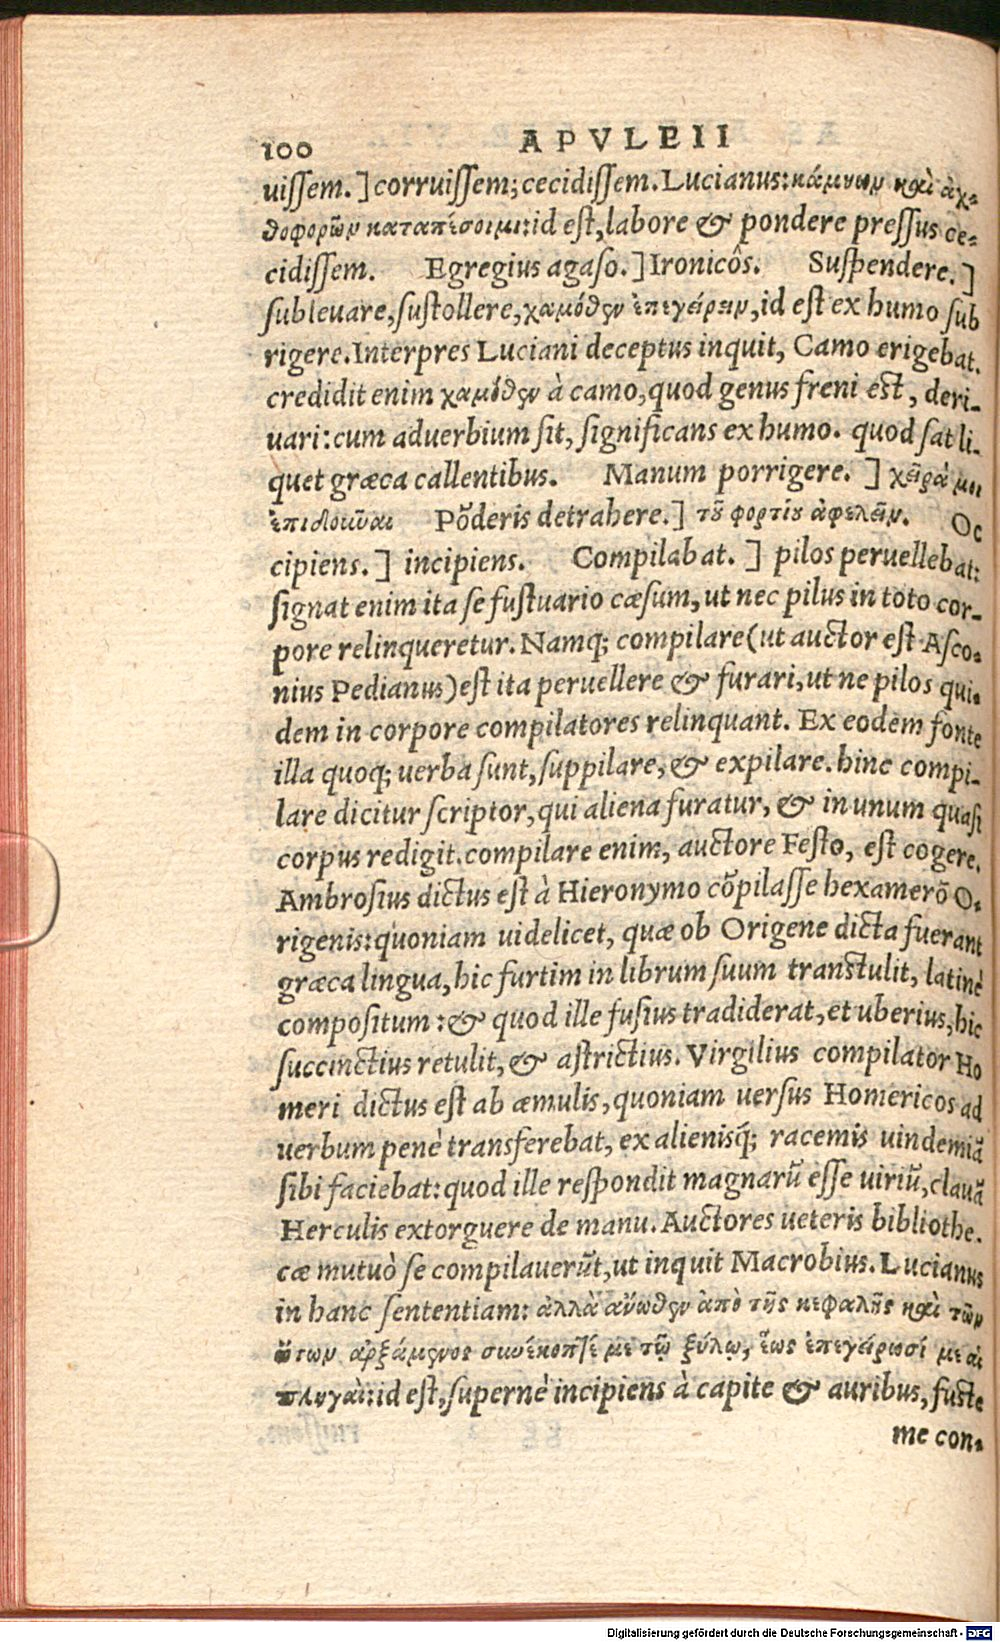 100 APVLEII
uissem. ] corruissem; cecidissem. Lucianus: κάμνων καὶ ἀχ-
θοφορῶν καταπέσοιμι: id est, labore & pondere pressus ce-
cidissem. Egregius agaso. ] Ironicôs. Suspendere. ]
subleuare, sustollere, χαμόθεν ἐπεγείρειν, id est ex humo sub
rigere. Interpres Luciani deceptus inquit, Camo erigebat.
credidit enim χαμόθεν à camo, quod genus freni est, deri-
uari: cum aduerbium sit, significans ex humo. quod sat li-
quet græca callentibus. Manum porrigere. ] χεῖρά μοι
ἐπιδοῦναι Põderis detrahere. ] τοῦ φορτίου ἀφελεῖν. Oc
cipiens. ] incipiens. Compilabat. ] pilos peruellebat:
signat enim ita se fustuario cæsum, ut nec pilus in toto cor-
pore relinqueretur. Namq; compilare (ut auctor est Asco-
nius Pedianus) est ita peruellere & furari, ut ne pilos qui-
dem in corpore compilatores relinquant. Ex eodem fonte
illa quoq; uerba sunt, suppilare, & expilare. hinc compi-
lare dicitur scriptor, qui aliena furatur, & in unum quasi
corpus redigit. compilare enim, auctore Festo, est cogere.
Ambrosius dictus est à Hieronymo cõpilasse hexamerõ O-
rigenis: quoniam uidelicet, quæ ob Origene dicta fuerant
græca lingua, hic furtim in librum suum transtulit, latinè
compositum: & quod ille fusius tradiderat, et uberius, hic
succinctius retulit, & astrictius. Virgilius compilator Ho
meri dictus est ab æmulis, quoniam uersus Homericos ad
uerbum penè transferebat, ex alienisq́; racemis uindemiã
sibi faciebat: quod ille respondit magnarũ esse uiriũ, clauã
Herculis extorquere de manu. Auctores ueteris bibliothe.
cæ mutuò se compilauerũt, ut inquit Macrobius. Lucianus
in hanc sententiam: ἀλλὰ ἄνωθεν ἀπὸ τῆς κεφαλῆς καὶ τῶν
ὤτων ἀρξάμενος συνέκοπτέ με τῷ ξύλῳ, ἕως ἐπεγείρωσί με αἱ
πληγαί: id est, supernè incipiens à capite & auribus, fuste
me con-
Digitalisierung gefördert durch die Deutsche Forschungsgemeinschaft - DFG